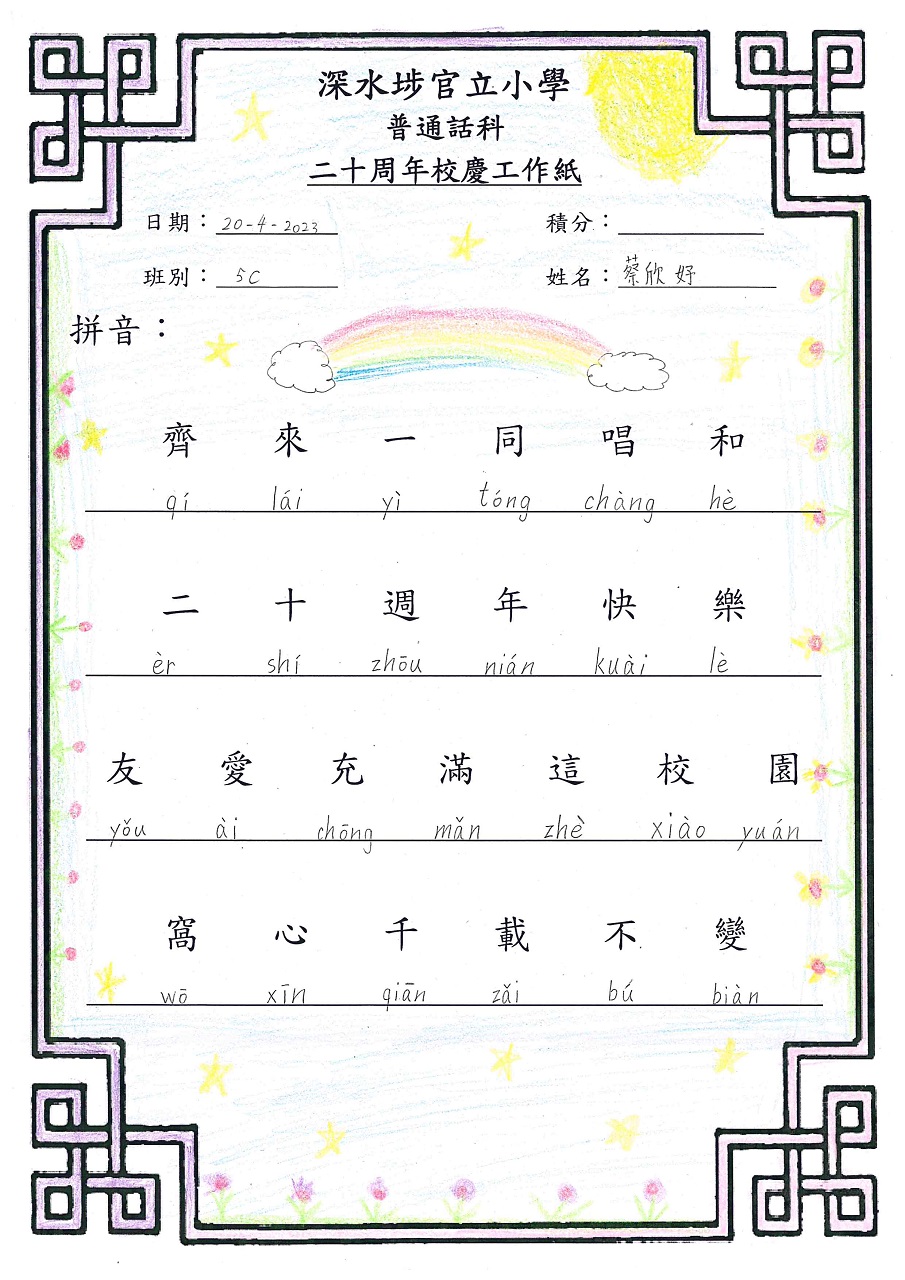 深水埗官立小學
普通話科
二十周年校慶工作紙
日期：20-4-2023 積分：
班別：5C 姓名：蔡欣妤
拼音：
齊 來 一 同 唱 和
qí lái yì tóng chàng hè
二 十 週 年 快 樂
èr shí zhōu nián kuài lè
友 愛 充 滿 這 校 園
yǒu ài chōng mǎn zhè xiào yuán
窩 心 千 載 不 變
wō xīn qiān zǎi bú biàn